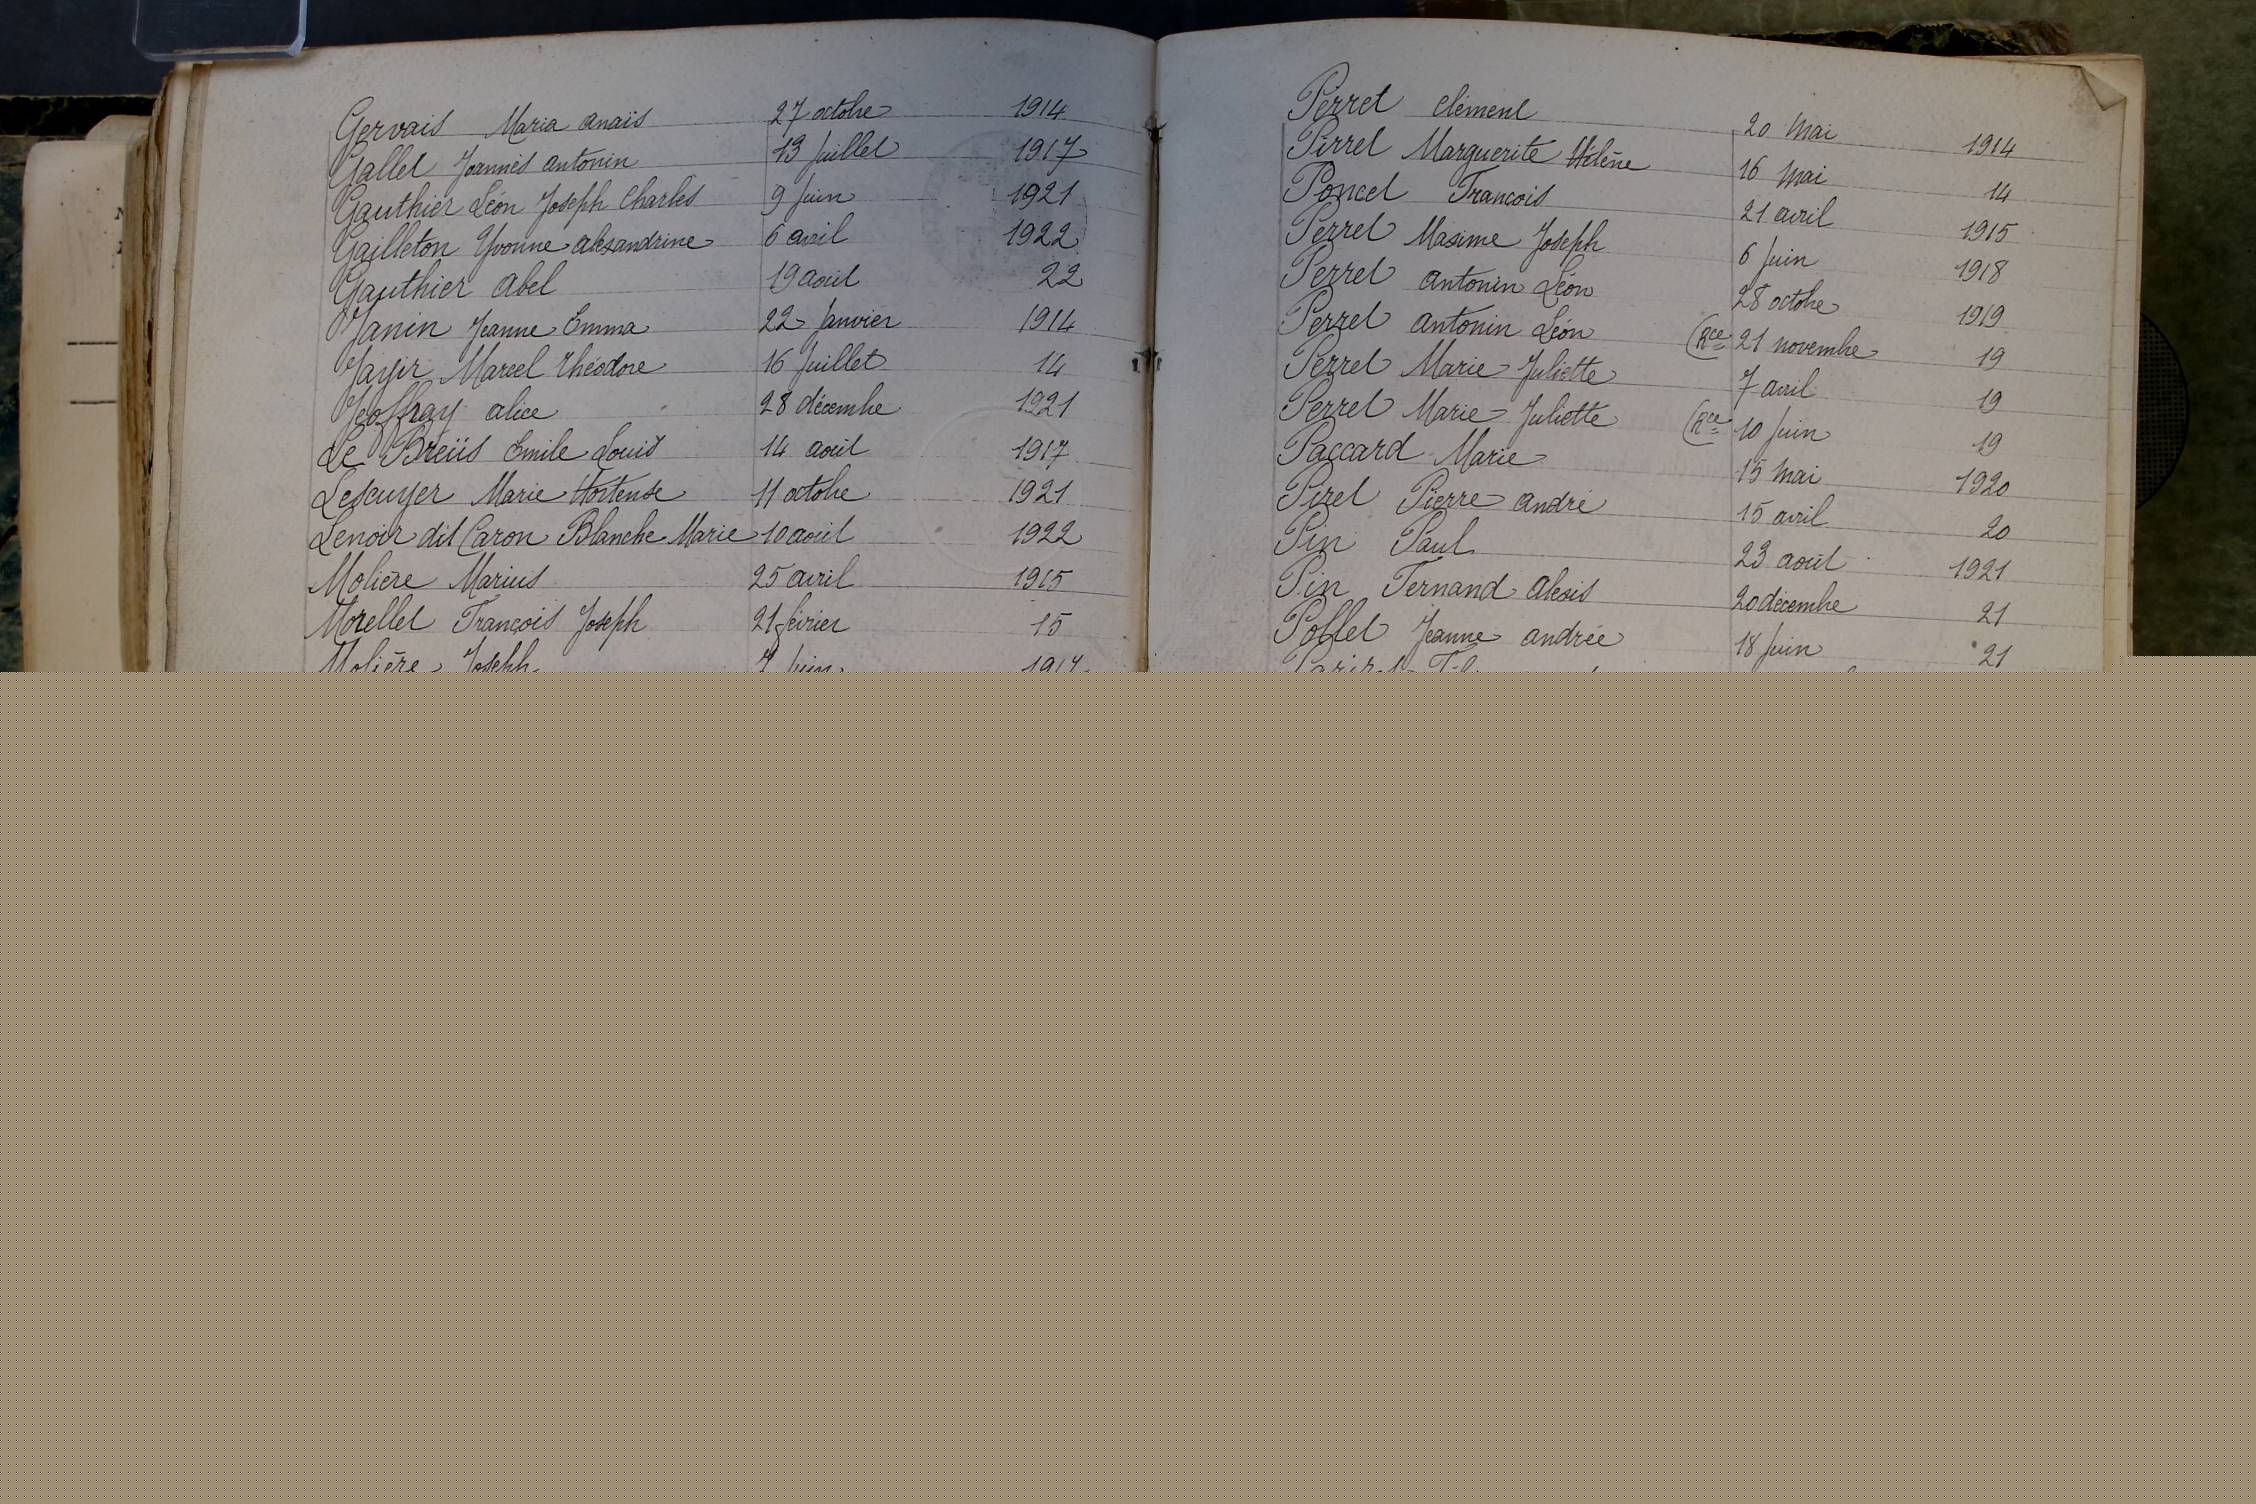 Gervais Maria anaïs 27 octobre 1914
Gallet Joannès antonin 13 Juillet 1917
Gauthier Léon Joseph Charles 9 Juin 1921
Gailleton Yvonne alexandrine 6 avril 1922
Gauthier abel 19 août 22
Janin Jeanne Emma 22 Janvier 1914
Jayir Marcel théodore 16 Juillet 14
Jeoffray alice 28 décembre 1921
Le Breüs Emile Louis 14 août 1917
Lescuyer Marie Hortense 11 octobre 1921
Lenoir dit Caron Blanche Marie 10 août 1922
Molière Marius 25 avril 1915
Morellet François Joseph 21 février 15
Molière Joseph 7 Juin 1917
Perret clément 20 Mai 1914
Pirret Marguerite Hélène 16 Mai 14
Poncet François 21 avril 1915
Perret Maxime Joseph 6 Juin 1918
Perret antonin Léon 28 octobre 1919
Perret antonin Léon (Rce 21 novembre 19
Perret Marie Juliette 7 avril 19
Perret Marie Juliette (Rce 10 Juin 19
Paccard Marie 15 Mai 1920
Pizet Pierre andré 15 avril 20
Pin Paul 23 août 1921
Pin Fernand alexis 20 décembre 21
Pollet Jeanne andrée 18 Juin 21